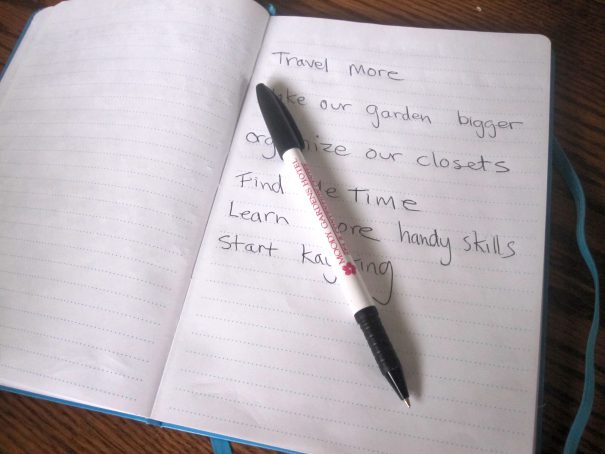 Travel More
our garden bigger
organize our closets
Find Time
Learn more handy skills
Start
MOODY GARDENS HOTEL